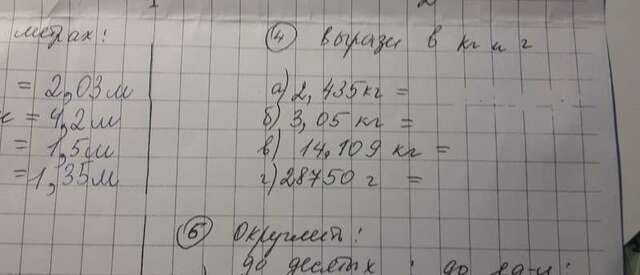 метрах:
= 2,03 м
= 4,2 м
= 1,5 м
= 1,35 м
4 вырази в кг и г
а) 2,435 кг =
б) 3,05 кг =
в) 14,109 кг =
г) 28750 г =
5 Округлить:
до десятых ; до